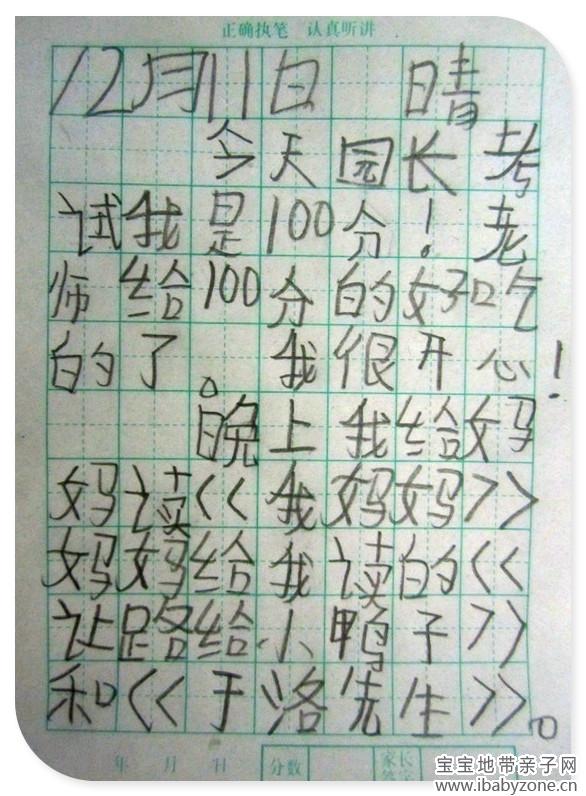 正确执笔 认真听讲
12月11日 晴
今天园长考
试我是100分！老
师给100分的好吃
的了。我很开心！
晚上我给妈
妈读<<我妈妈>>
妈妈给我读的<<
让路给小鸭子>>
和<<于洛先生>>。
年 月 日 分数 家长
宝宝地带亲子网
www.ibabyzone.cn